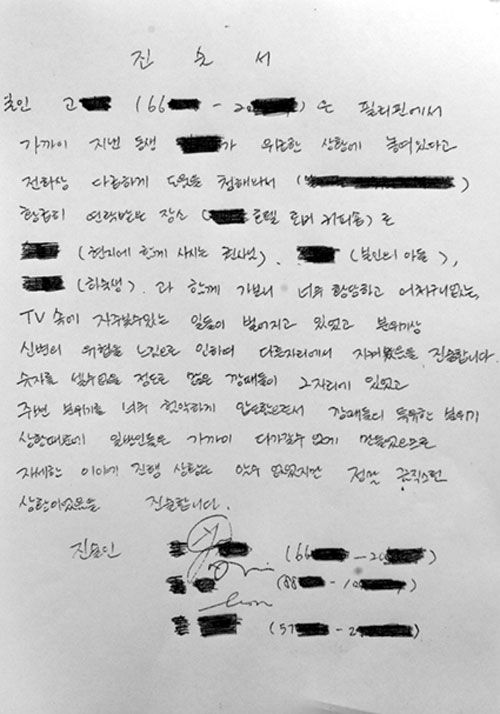 진 술 서
본인 고 (66 - 20 ) 은 필리핀에서
가까이 지낸 동생 가 위독한 상황에 놓여있다고
전화상 다급하게 도움을 청해와서 ( )
황급히 연락받은 장소 ( 호텔 로비 커피숍) 로
(현지에 함께 사시는 권사님), (본인의 아들),
(하숙생). 과 함께 가보니 너무 황당하고 어처구니없는,
TV 속에 자주볼수있는 일들이 벌어지고 있었고 분위기상
신변의 위험을 느낌으로 인하여 다른자리에서 지켜봤음을 진술합니다.
숫자를 셀수없을 정도로 많은 깡패들이 그자리에 있었고
주변 분위기를 너무 험악하게 압도함으로서 깡패들의 특유한 분위기
상황때문에 일반인들은 가까이 다가갈수 없게 만들었으므로
자세한 이야기 진행 상황은 알수 없었지만 정말 공직스런
상황이었음을 진술합니다.
진술인 (66 - 20 )
(88 - 10 )
(57 - 2 )